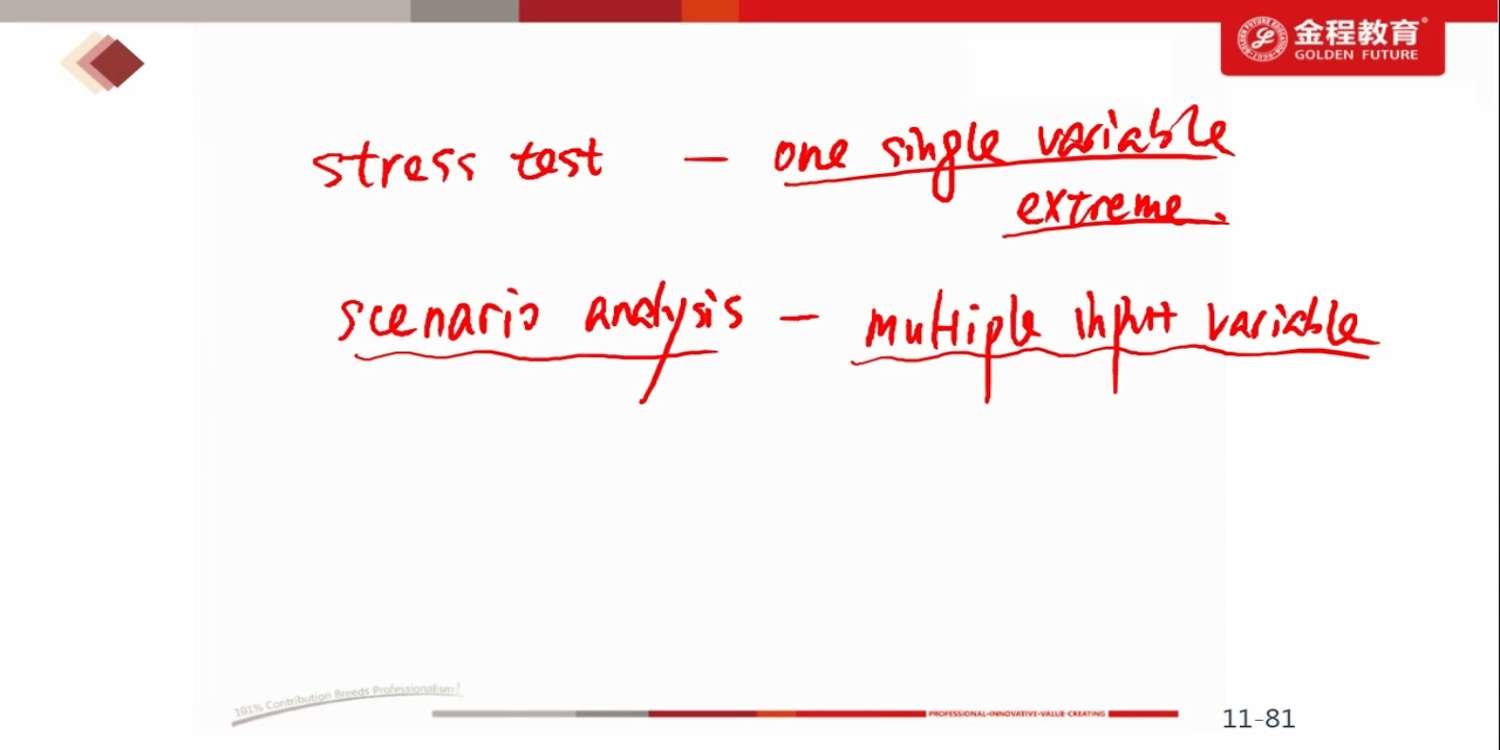 金程教育
GOLDEN FUTURE
stress test — one single variable
extreme.
scenario analysis — multiple input variable
101% Contribution Breeds Professionalism!
PROFESSIONAL·INNOVATIVE·VALUE·CREATING
11-81